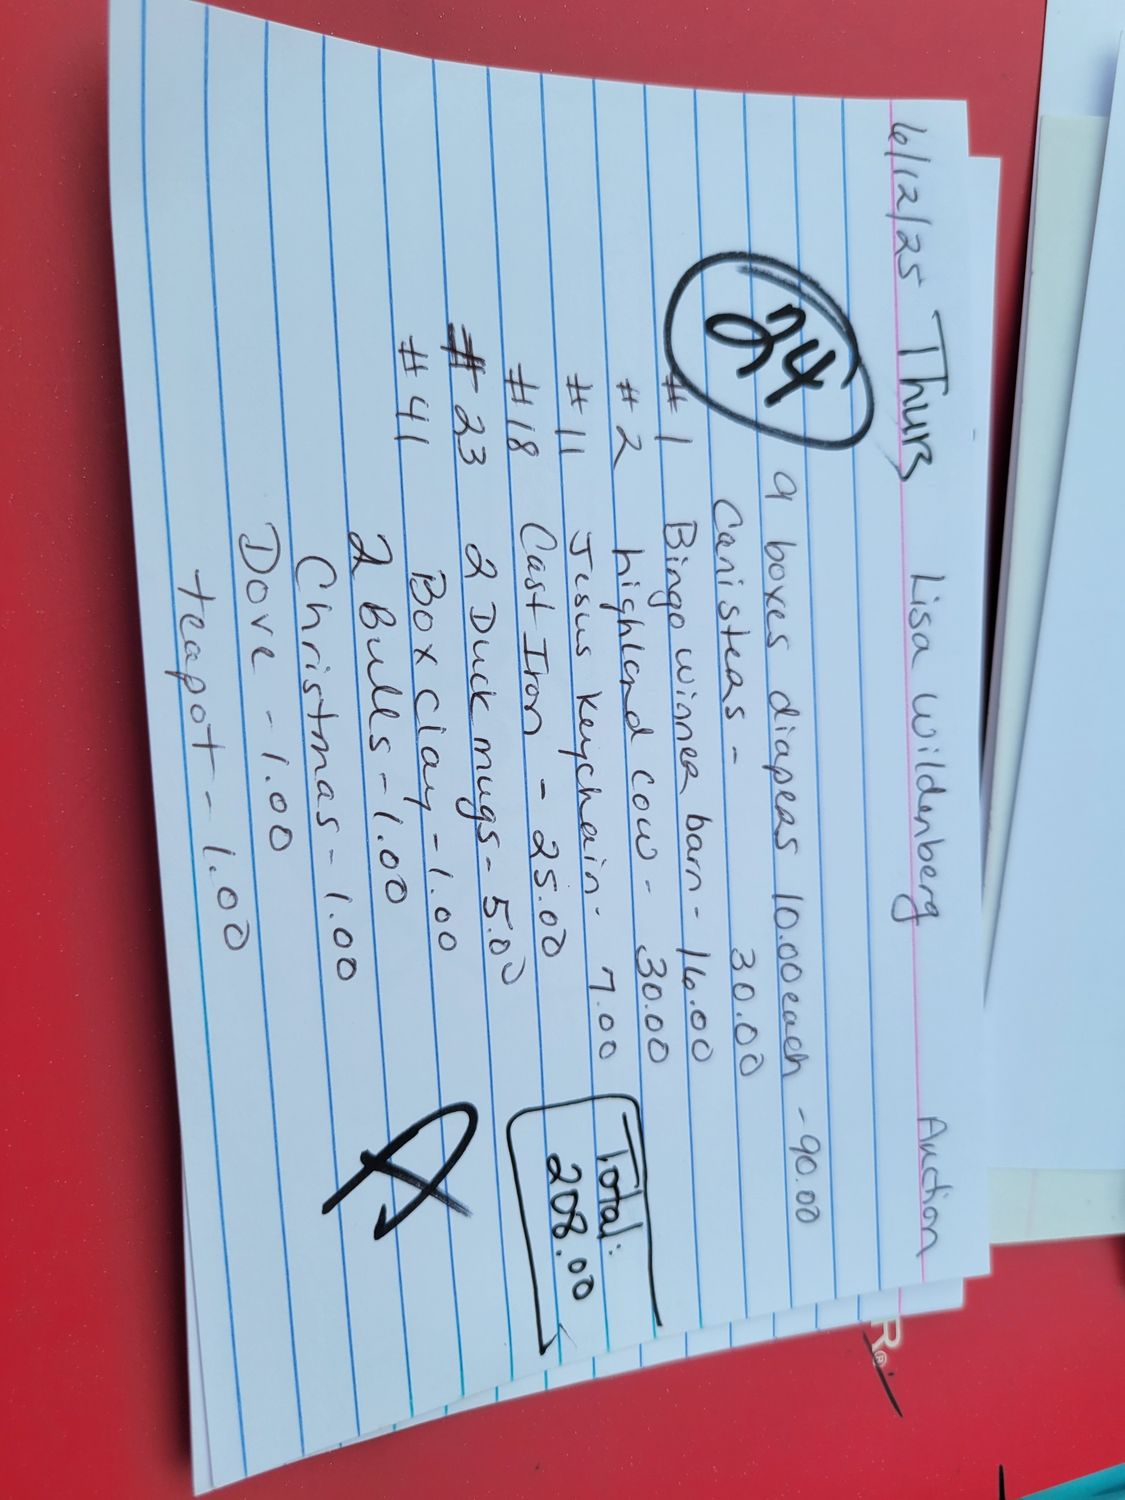 6/12/25 Thurs Lisa Wildenberg Auction
24
9 boxes diapers 10.00 each - 90.00
Canisters - 30.00
#1 Bingo winner barn - 16.00
#2 highland cow - 30.00
#11 Jesus Keychain - 7.00
#18 Cast Iron - 25.00
#23 2 Duck mugs - 5.00
#41 Box clay - 1.00
2 Bulls - 1.00
Christmas - 1.00
Dove - 1.00
teapot - 1.00
Total:
208.00
R®